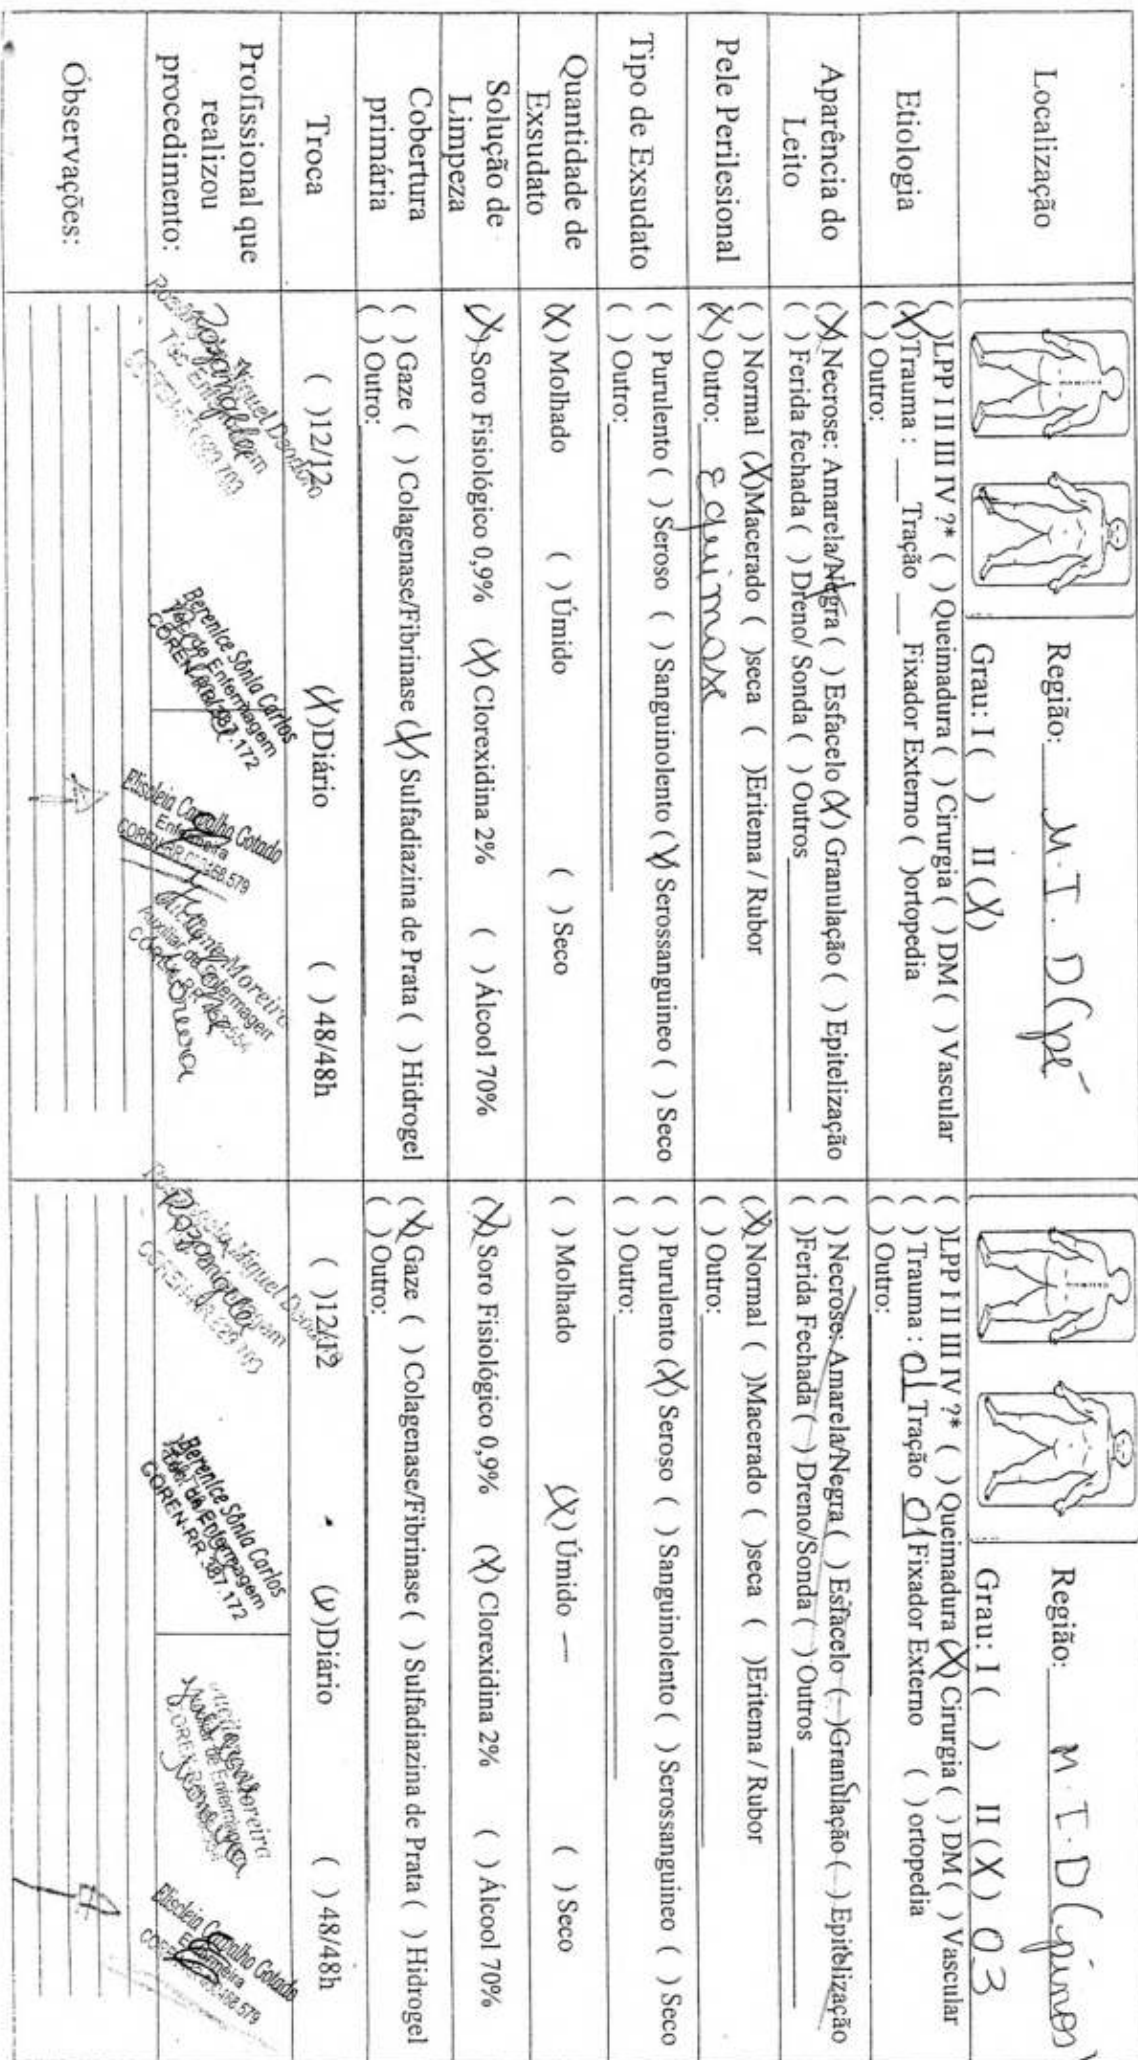 Localização
Região: M.I.D (pé
Grau: I ( ) II (X)
Região: M.I.D (pinos)
Grau: I ( ) II (X) 03
Etiologia
( )LPP I II III IV ?* ( ) Queimadura ( ) Cirurgia ( ) DM ( ) Vascular
(X)Trauma : ___ Tração ___ Fixador Externo ( )ortopedia
( ) Outro:
( )LPP I II III IV ?* ( ) Queimadura (X) Cirurgia ( ) DM ( ) Vascular
( ) Trauma : 01 Tração 01 Fixador Externo ( ) ortopedia
( ) Outro:
Aparência do
Leito
(X) Necrose: Amarela/Negra ( ) Esfacelo (X) Granulação ( ) Epitelização
( ) Ferida fechada ( ) Dreno/ Sonda ( ) Outros
( ) Necrose: Amarela/Negra ( ) Esfacelo ( ) Granulação ( ) Epitelização
( )Ferida Fechada ( ) Dreno/Sonda ( ) Outros
Pele Perilesional
( ) Normal (X)Macerado ( )seca ( )Eritema / Rubor
(X) Outro: Equimose
(X) Normal ( )Macerado ( )seca ( )Eritema / Rubor
( ) Outro:
Tipo de Exsudato
( ) Purulento ( ) Seroso ( ) Sanguinolento (X) Serossanguineo ( ) Seco
( ) Outro:
( ) Purulento (X) Seroso ( ) Sanguinolento ( ) Serossanguineo ( ) Seco
( ) Outro:
Quantidade de
Exsudato
(X) Molhado ( ) Úmido ( ) Seco
( ) Molhado (X) Úmido — ( ) Seco
Solução de
Limpeza
(X) Soro Fisiológico 0,9% (X) Clorexidina 2% ( ) Álcool 70%
(X) Soro Fisiológico 0,9% (X) Clorexidina 2% ( ) Álcool 70%
Cobertura
primária
( ) Gaze ( ) Colagenase/Fibrinase (X) Sulfadiazina de Prata ( ) Hidrogel
( ) Outro:
(X) Gaze ( ) Colagenase/Fibrinase ( ) Sulfadiazina de Prata ( ) Hidrogel
( ) Outro:
Troca
( )12/12 (X)Diário ( ) 48/48h
( )12/12 (X)Diário ( ) 48/48h
Profissional que
realizou
procedimento:
Berenice Sônia Carlos
Téc. de Enfermagem
COREN-RR 387.172
Elisoleia Carvalho Gotado
Enfermeira
Moreira
Auxiliar de Enfermagem
Berenice Sônia Carlos
Téc. de Enfermagem
COREN-RR 387.172
Moreira
Auxiliar de Enfermagem
Elisoleia Carvalho Gotado
Enfermeira
Observações: